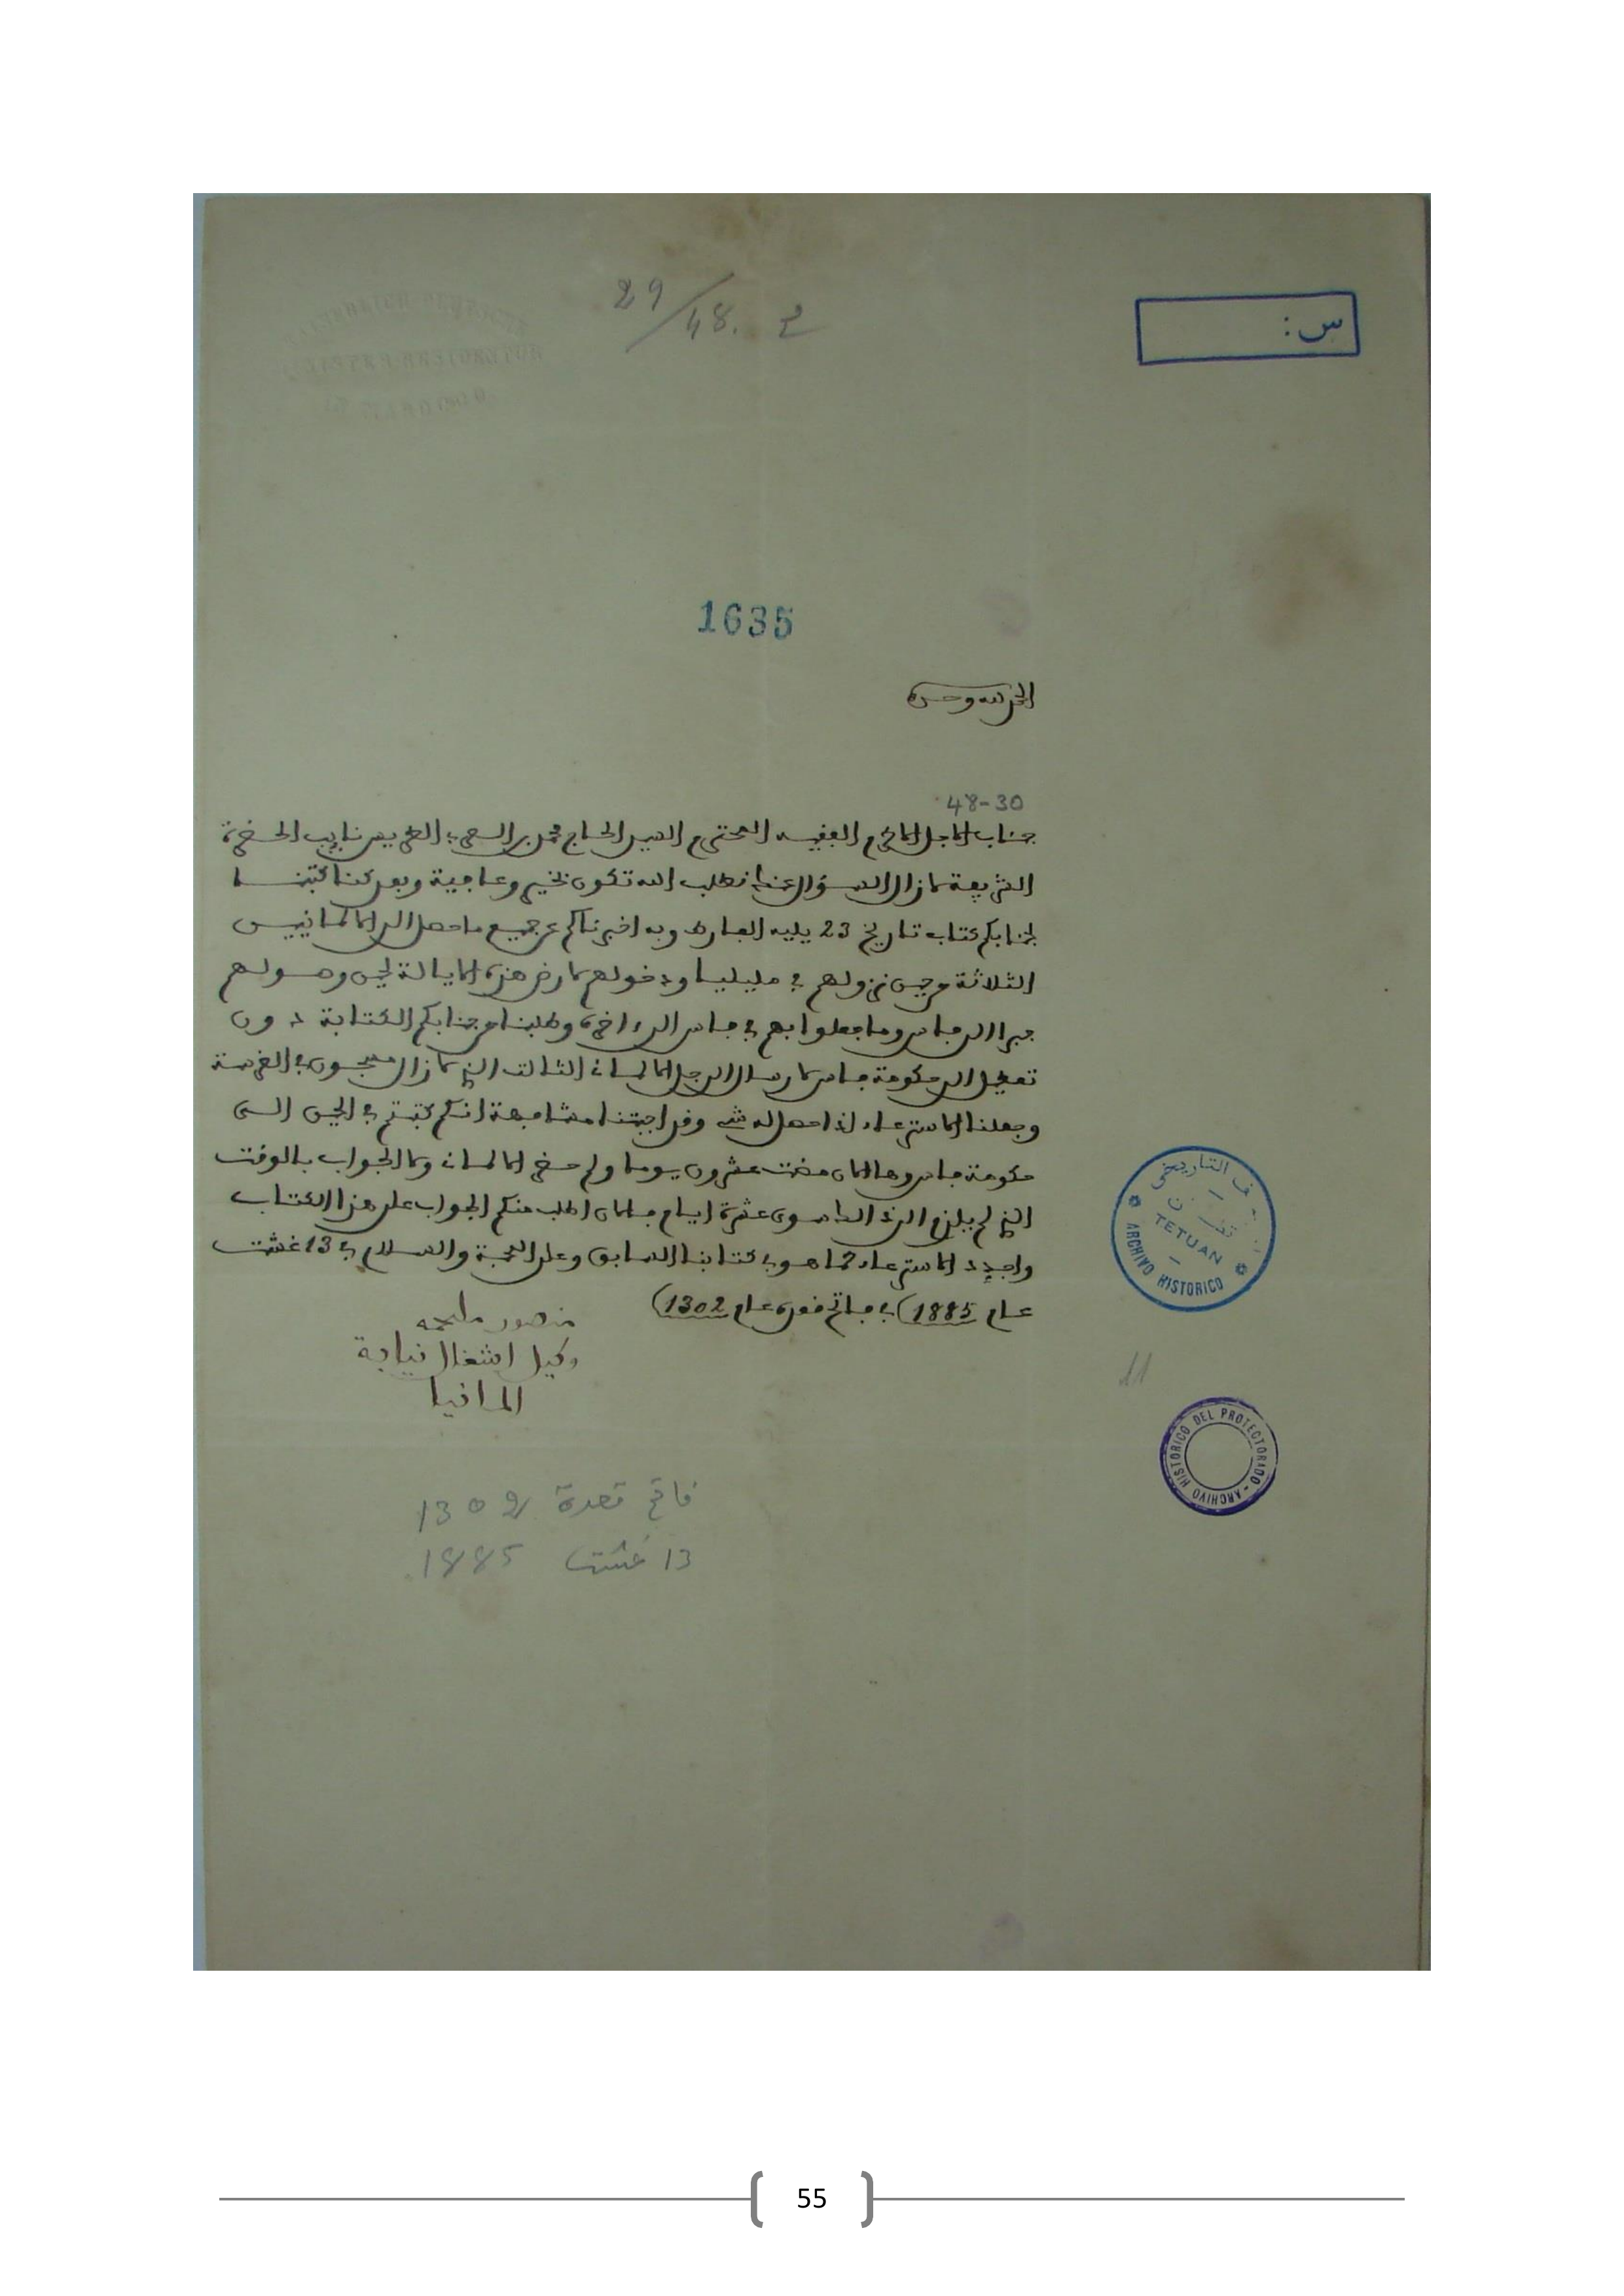 29/48. 2
س:
1635
الحمد لله وحده
48-30
جناب الاجل الاكرم الفقيه المحترم السيد الحاج محمد بن العربي الطريس نايب الحضرة
الشريفة لازال السؤال عنك نطلب الله تكون بخير وعافية وبعد كنا كتبنا
لجنابكم كتاب تاريخ 23 يليه الجارى وبه اخبرناكم عن جميع ما حصل الى الالمانيين
الثلاثة من حين نزولهم في مليليا ودخولهم لارض هذه الايالة لحين وصولهم
جبرا الى فاس وما فعلوا بهم في فاس المذكورة وطلبنا من جنابكم الكتابة دون
تعطيل الى حكومة فاس لارسال الرجل الالماني الثالث الذي لازال مسجون في
وجعلنا الاسترعاء اذا حصل له شيء وقد اجبتنا مشافهة انكم كتبتم في الحين الى
حكومة فاس وها الان مضت عشرون يوما ولم حضر الالماني ولا الجواب بالوقت
الذي لم يلزم الى ذالك سوى عشرة ايام فالان اطلب منكم الجواب على هذا الكتاب
واجدد الاسترعاء كما هو في كتابنا السابق وعلى المحبة والسلام في 13 غشت
عام 1885) في فاتح قعدة عام 1302)
منصور ملحمه
وكيل اشغال نيابة
المانيا
فاتح قعدة 1302
13 غشت 1885.
11
التاريخي
TETUAN
ARCHIVO HISTORICO
ARCHIVO HISTORICO DEL PROTECTORADO
55